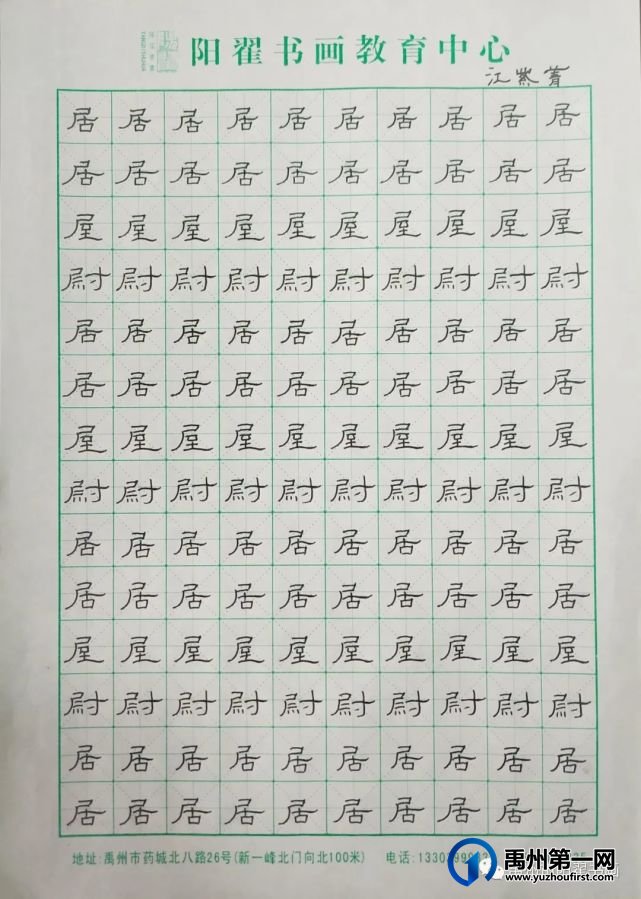 阳翟书画教育中心
江紫菁
居居居居居居居居居居
居居居居居居居居居居
屋屋屋屋屋屋屋屋屋屋
尉尉尉尉尉尉尉尉尉尉
居居居居居居居居居居
居居居居居居居居居居
屋屋屋屋屋屋屋屋屋屋
尉尉尉尉尉尉尉尉尉尉
居居居居居居居居居居
居居居居居居居居居居
屋屋屋屋屋屋屋屋屋屋
尉尉尉尉尉尉尉尉尉尉
居居居居居居居居居居
居居居居居居居居居居
地址:禹州市药城北八路26号(新一峰北门向北100米) 电话:
禹州第一网
www.yuzhoufirst.com